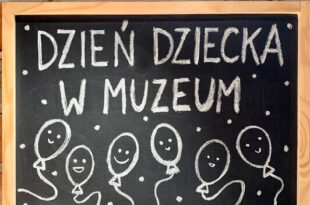 DZIEŃ DZIECKA
W MUZEUM